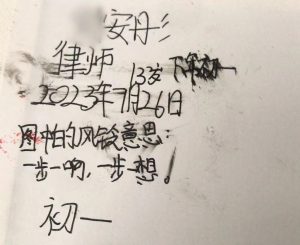 安彤彡
律师 13岁 下午初一
2023年7月26日
图柏的风铃意思:
一步一响,一步一想!
初一